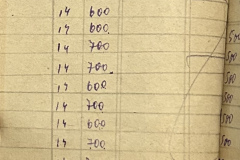 14 600
14 600.
14 700
14 700.
14 600
14 700
14 600
14 700
500
500
500
500
500